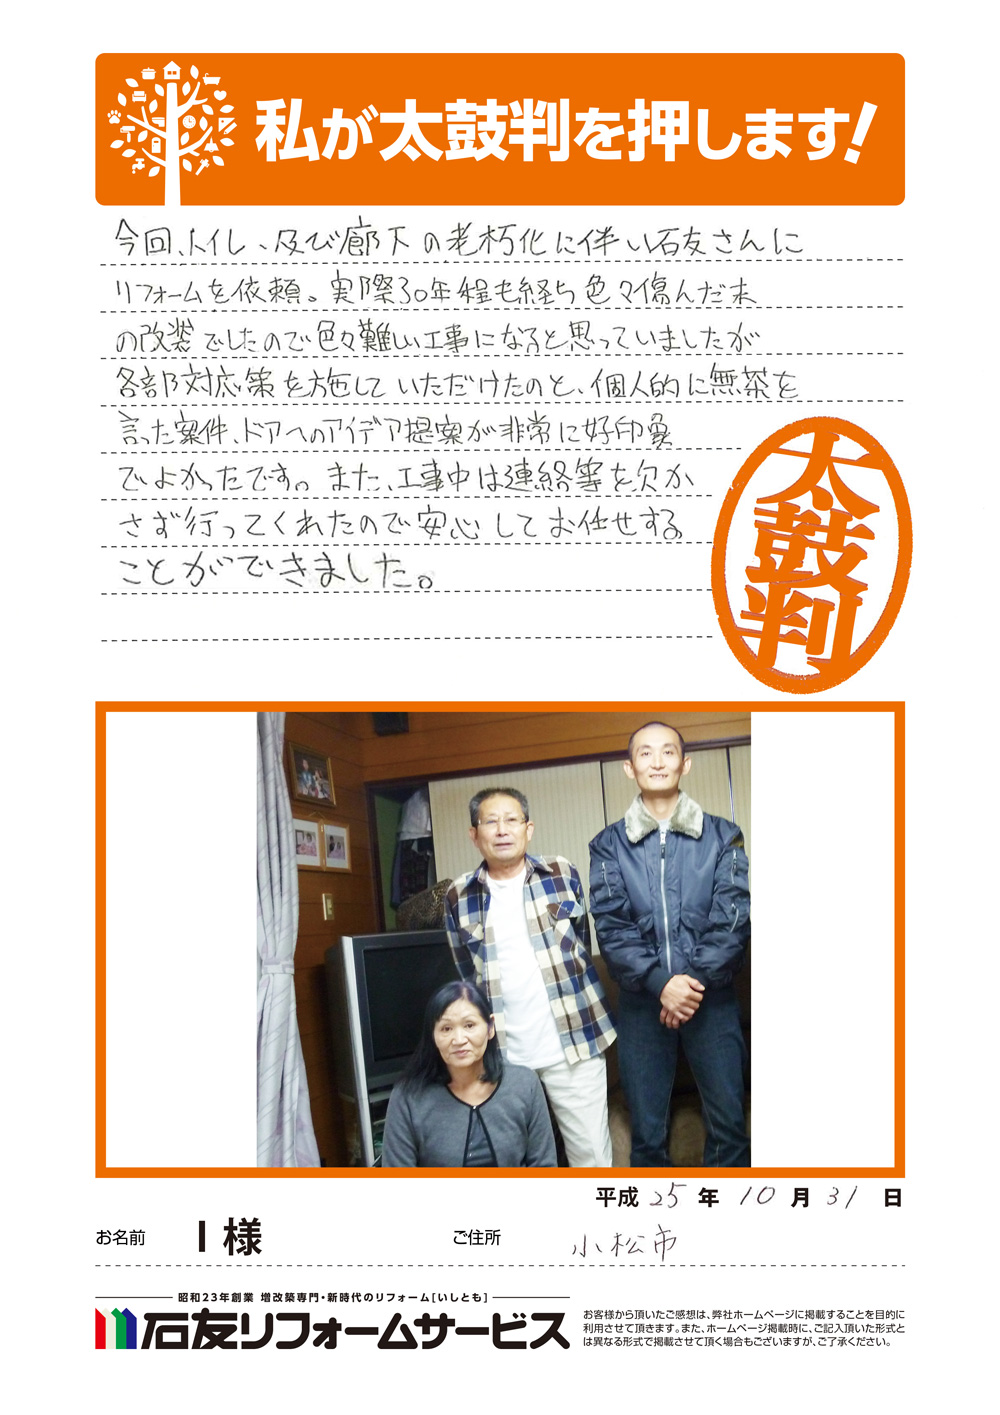 私が太鼓判を押します!
今回、トイレ、及び廊下の老朽化に伴い石友さんに
リフォームを依頼。実際30年程も経ち色々傷んだ末
の改装でしたので色々難しい工事になると思っていましたが
各部対応策を施していただけたのと、個人的に無茶を
言った案件、ドアへのアイデア提案が非常に好印象
でよかったです。また、工事中は連絡等を欠か
さず行ってくれたので安心してお任せする
ことができました。
太鼓判
平成25年10月31日
お名前 I様 ご住所 小松市
昭和23年創業 増改築専門・新時代のリフォーム[いしとも]
石友リフォームサービス
お客様から頂いたご感想は、弊社ホームページに掲載することを目的に
利用させて頂きます。また、ホームページ掲載時に、ご記入頂いた形式と
は異なる形式で掲載させて頂く場合もございますが、ご了承ください。